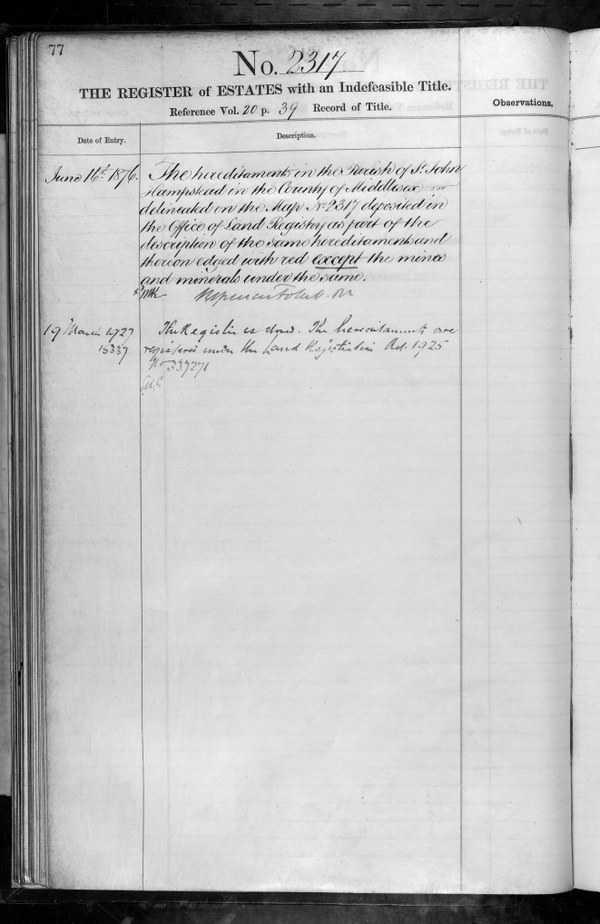 77
No. 2317
THE REGISTER of ESTATES with an Indefeasible Title.
Reference Vol. 20 p. 39 Record of Title.
Observations.
Date of Entry.
Description.
June 16th 1876.
The hereditaments in the Parish of St. John
Hampstead in the County of Middlesex
delineated on the Map No 2317 deposited in
the Office of Land Registry as part of the
description of the same hereditaments and
thereon edged with red except the mines
and minerals under the same.
19 March 1927
15337
The Register is closed. The hereditaments are
registered under the Land Registration Act. 1925
No 337271